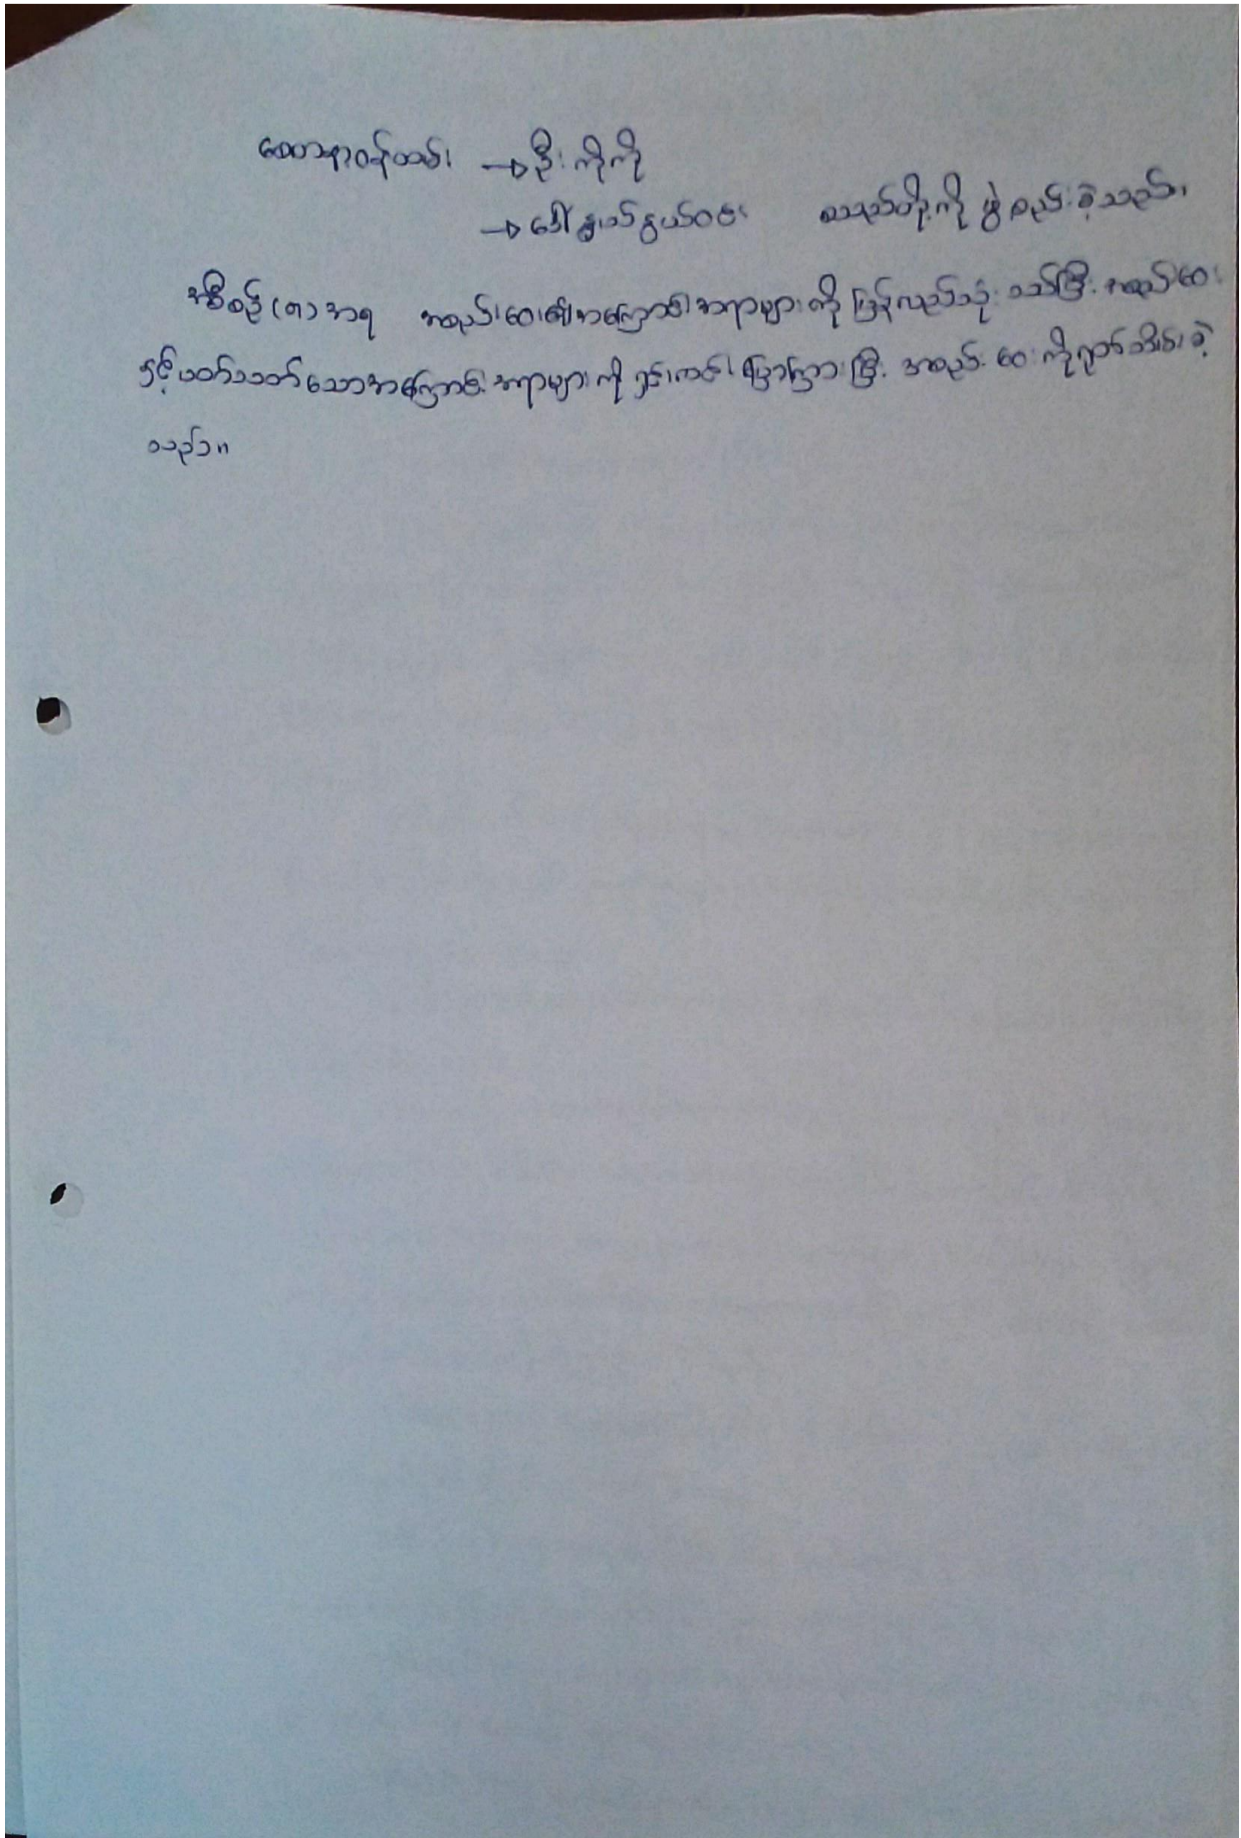 စေတနာ့ဝန်ထမ်း → ဦးကိုကို
→ ဒေါ်နွယ်နွယ်ဝင်း စသည်တို့ကို ဖွဲ့စည်းခဲ့သည်။
အစီစဉ် (၈) အရ အစည်းဝေး၏အကြောင်းအရာများကို ပြန်လည်သုံးသပ်ပြီး အစည်းဝေး
နှင့်ပတ်သတ်သောအကြောင်းအရာများကို ရှင်းလင်းပြောကြားပြီး အစည်းဝေးကိုရုတ်သိမ်းခဲ့
သည်။